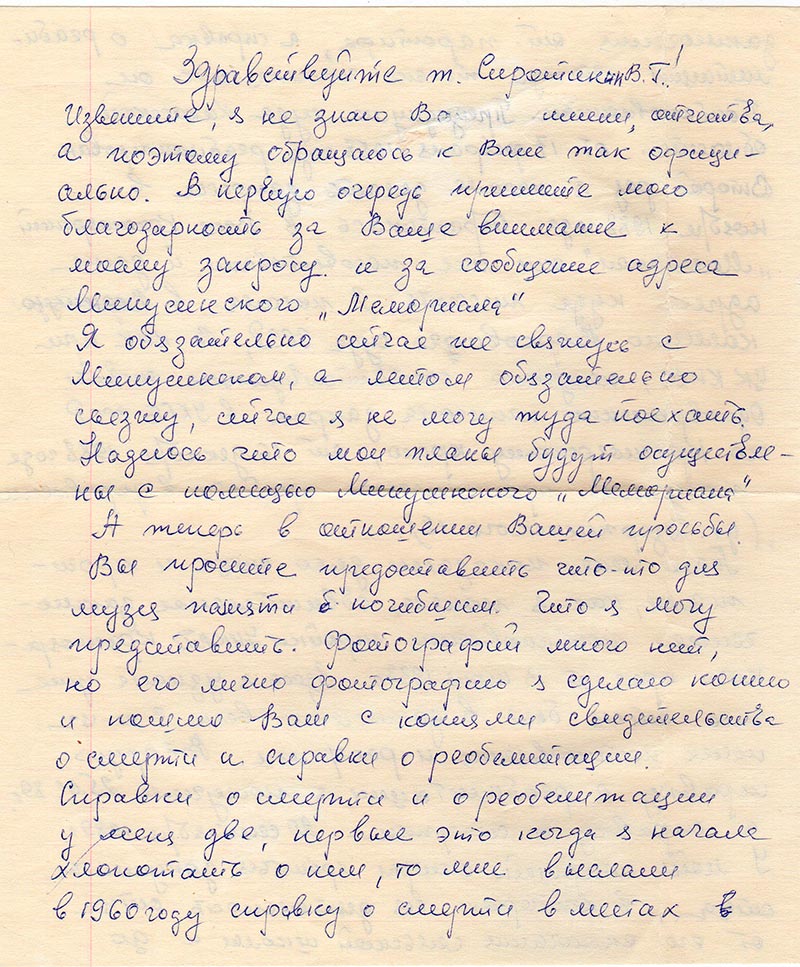 Здравствуйте т. Сиротинин В.Т.!
Извените, я не знаю Ва имени, отчества,
а поэтому обращаюсь к Вам так офици-
ально. В первую очередь примите мою
благодарность за Ваше внимание к
моему запросу. и за сообщение адреса
Минусинского „Мемориала“
Я обязательно сейчас же свяжусь с
Минусинском, а летом обязательно
съезжу, сейчас я не могу туда поехать.
Надеюсь что мои планы будут осуществле-
ны с помощью Минусинского „Мемориала“
А теперь в отношении Вашей просьбы.
Вы просите предоставить что-то для
музея памяти б погибшим. Что я могу
представить. Фотографий много нет,
но его лично фотографию я сделаю копию
и пошлю Вам с копиями свидетельства
о смерти и справки о реобелитации.
Справки о смерти и о реобелитации
у меня две, первые это когда я начала
хлопотать о нем, то мне выслали
в 1960 году справку о смерти в местах в